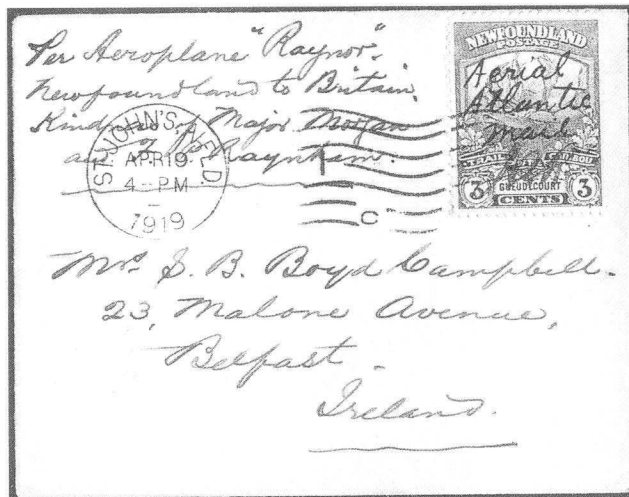 Per Aeroplane "Raynor".
Newfoundland to Britain.
Kindness of Major Morgan
and of Raynham.
ST. JOHN'S, NFLD.
APR 19
4 - PM
1919
C
NEWFOUNDLAND
POSTAGE
Aerial
Atlantic
Mail
TRAIL OF THE CARIBOU
3 GUEUDECOURT 3
CENTS
Mrs S. B. Boyd Campbell.
23, Malone Avenue,
Belfast.
Ireland.